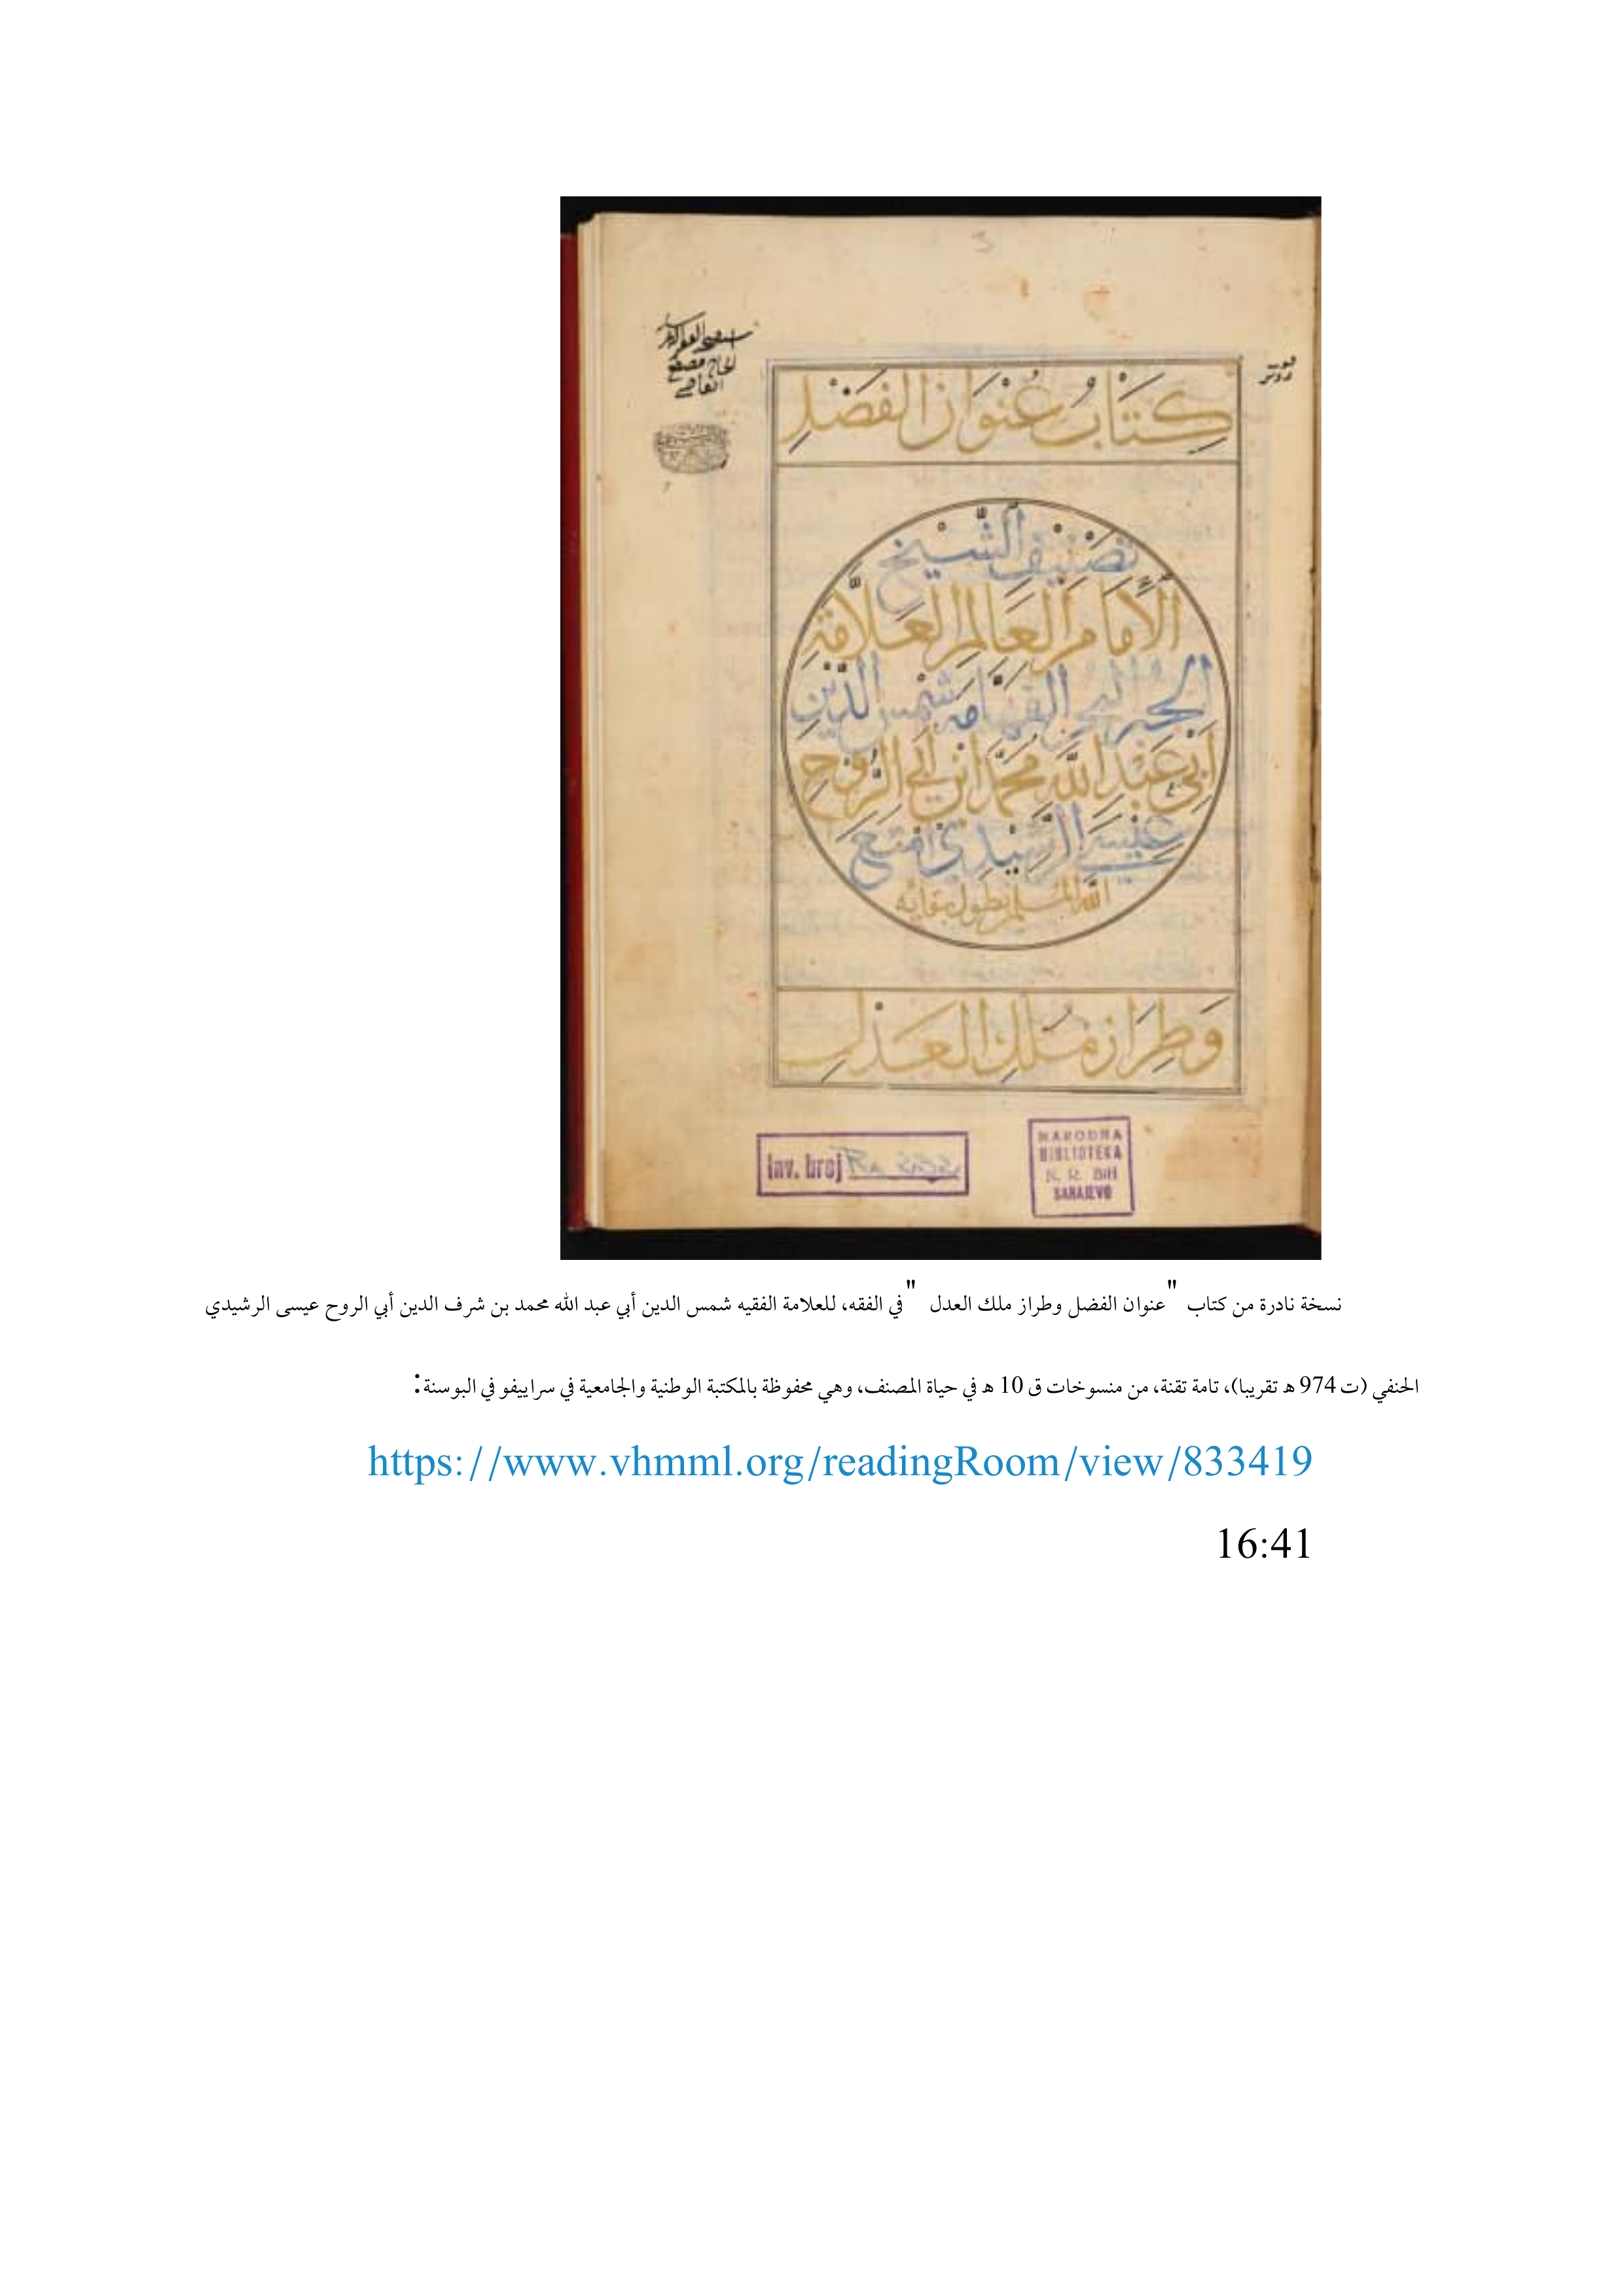 3
كِتَابُ عُنْوَانِ الفَضْلِ
تَصْنِيفُ الشَّيْخِ
الْإِمَامِ الْعَالِمِ الْعَلَّامَةِ
الحبر البحر الفهامة شمس الدين
أبي عبد الله محمد ابن أبي الروح
عيسى الرشيدي امتع
الله المسلمين بطول بقايه
وَطِرَازِ مُلْكِ العَدْلِ
Inv. broj
NARODNA
BIBLIOTEKA
N. R. BiH
SARAJEVO
نسخة نادرة من كتاب "عنوان الفضل وطراز ملك العدل "في الفقه، للعلامة الفقيه شمس الدين أبي عبد الله محمد بن شرف الدين أبي الروح عيسى الرشيدي
الحنفي (ت 974 ه تقريبا)، تامة تقنة، من منسوخات ق 10 ه في حياة المصنف، وهي محفوظة بالمكتبة الوطنية والجامعية في سراييفو في البوسنة:
https://www.vhmml.org/readingRoom/view/833419
16:41